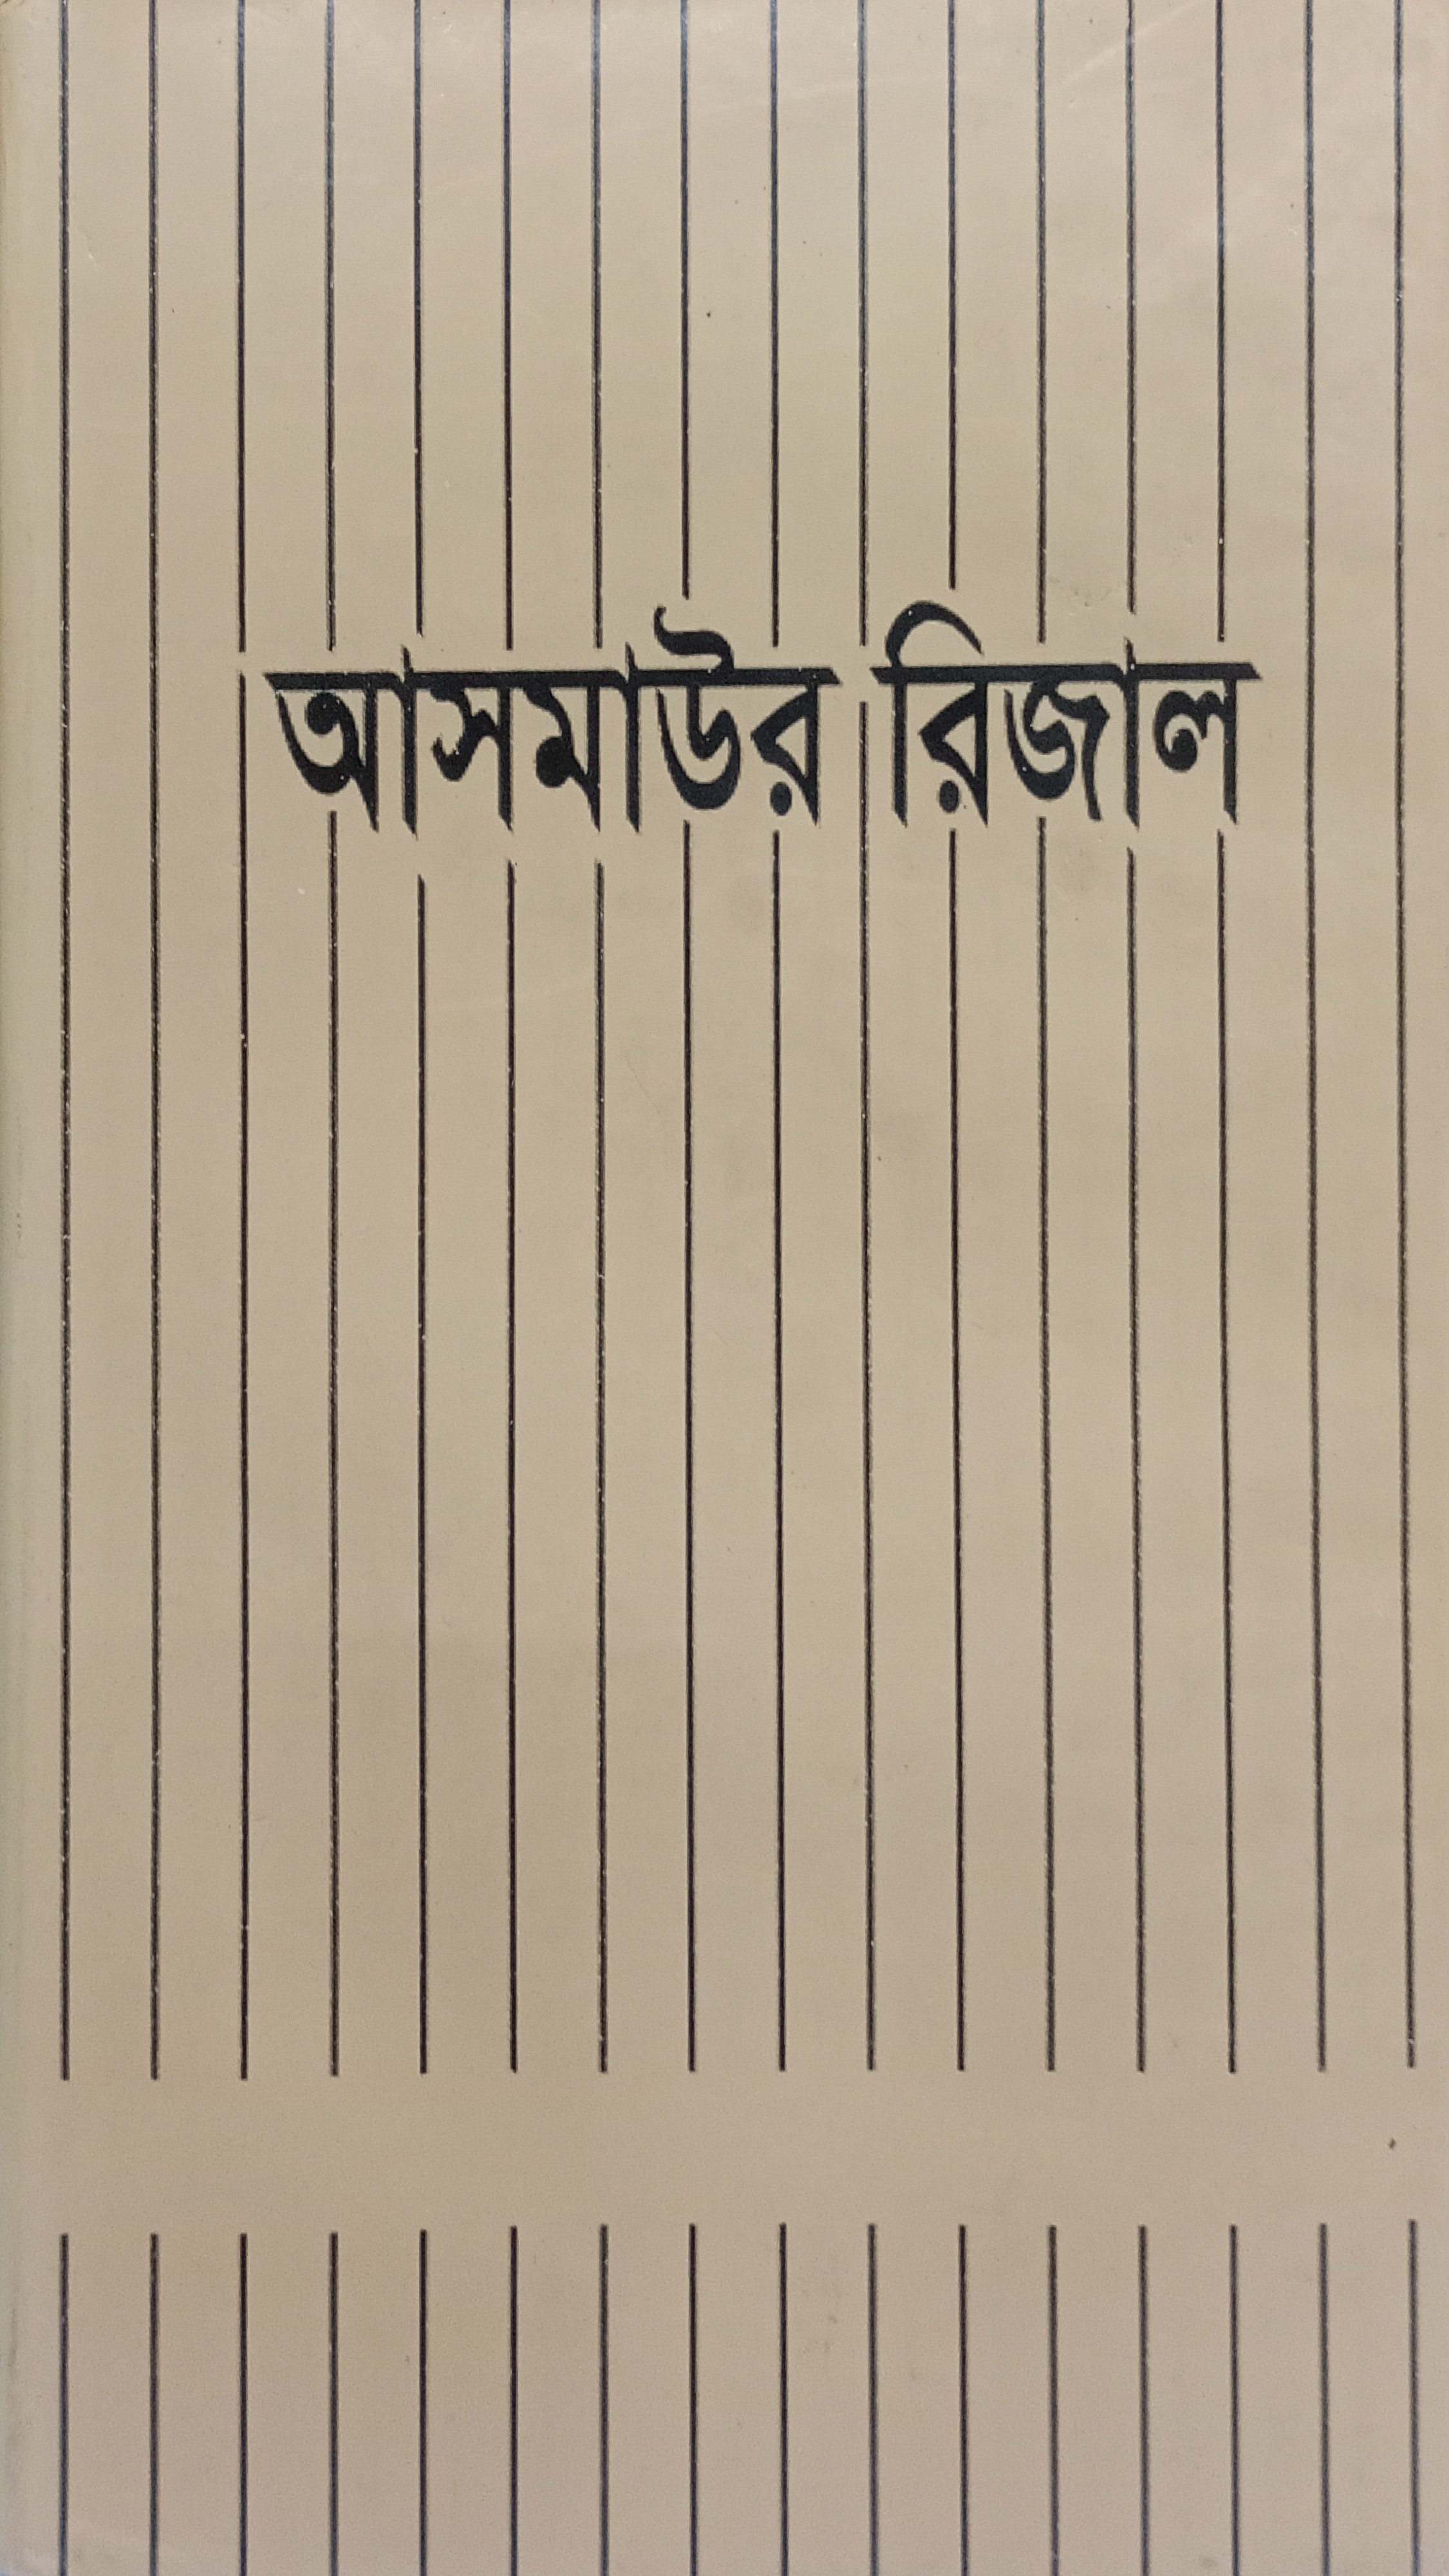 আসমাউর রিজাল